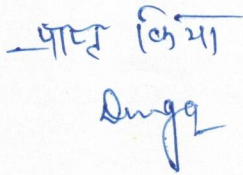 प्राप्त किया
Durga